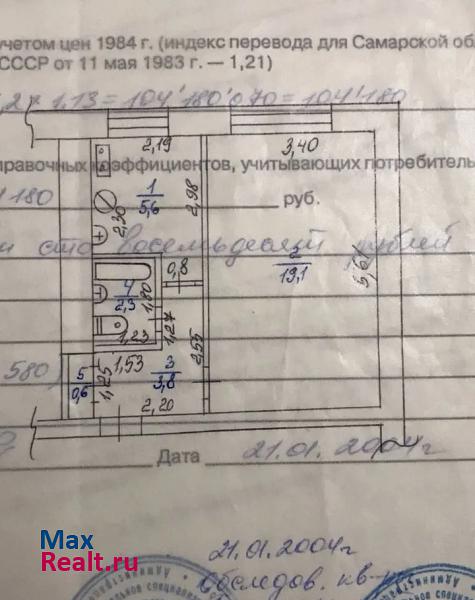 учетом цен 1984 г. (индекс перевода для Самарской об
СССР от 11 мая 1983 г. — 1,21)
1,13 = 104'180'070 = 104'180
2,19
3,40
правочных коэффициентов, учитывающих потребитель
180
1
5,6
2,98
2,30
руб.
сто восемьдесят рублей
0,8
2
19,1
4
2,3
1,80
1,27
1,23
2,55
580)
5
0,6
1,25
1,53
3
3,8
2,20
Дата 21.01.2004г
21.01.2004г
обследов. кв-
Max
Realt.ru